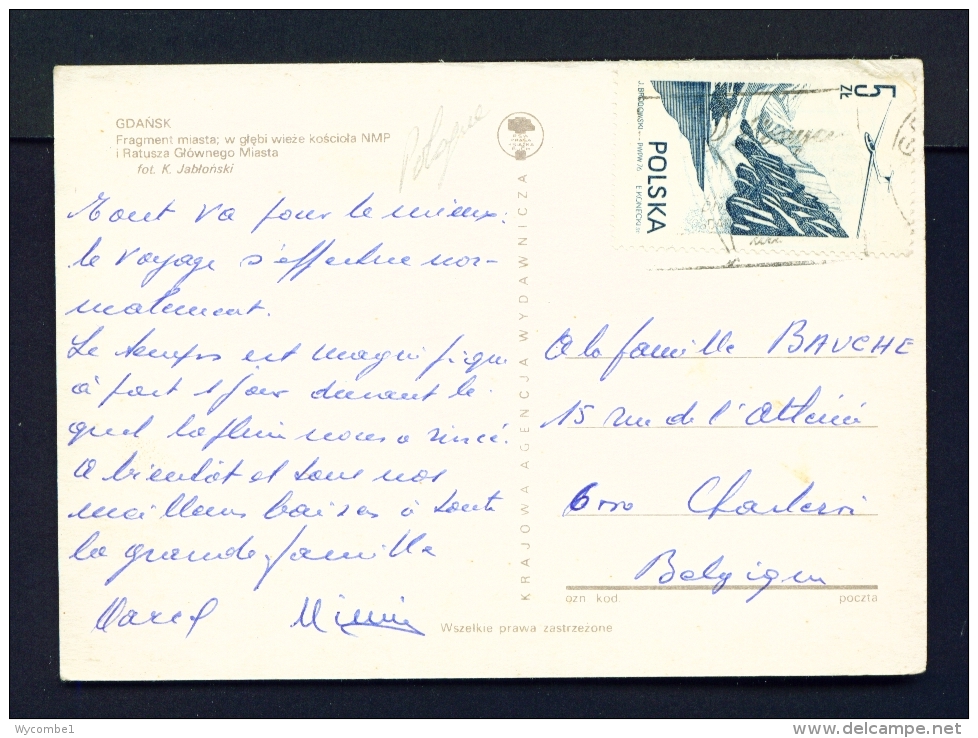 GDAŃSK
Fragment miasta; w głębi wieże kościoła NMP
i Ratusza Głównego Miasta
fot. K. Jabłoński
Pologne
Tout va pour le mieux:
le voyage s'effectue nor-
malement.
Le temps est magnifique
à part 1 jour durant le-
quel la pluie nous a rincé.
A bientôt et tous nos
meilleurs baisers à toute
la grande famille
Marcel Mimie
KRAJOWA AGENCJA WYDAWNICZA
5 ZŁ
POLSKA
J. BRODOWSKI - PWPW 76
E. KONECKI
A la famille BAUCHE
15 rue de l'Athénée
6000 Charleroi
Belgique
ozn kod. poczta
Wszelkie prawa zastrzeżone
Wycombe1
www.delcampe.net